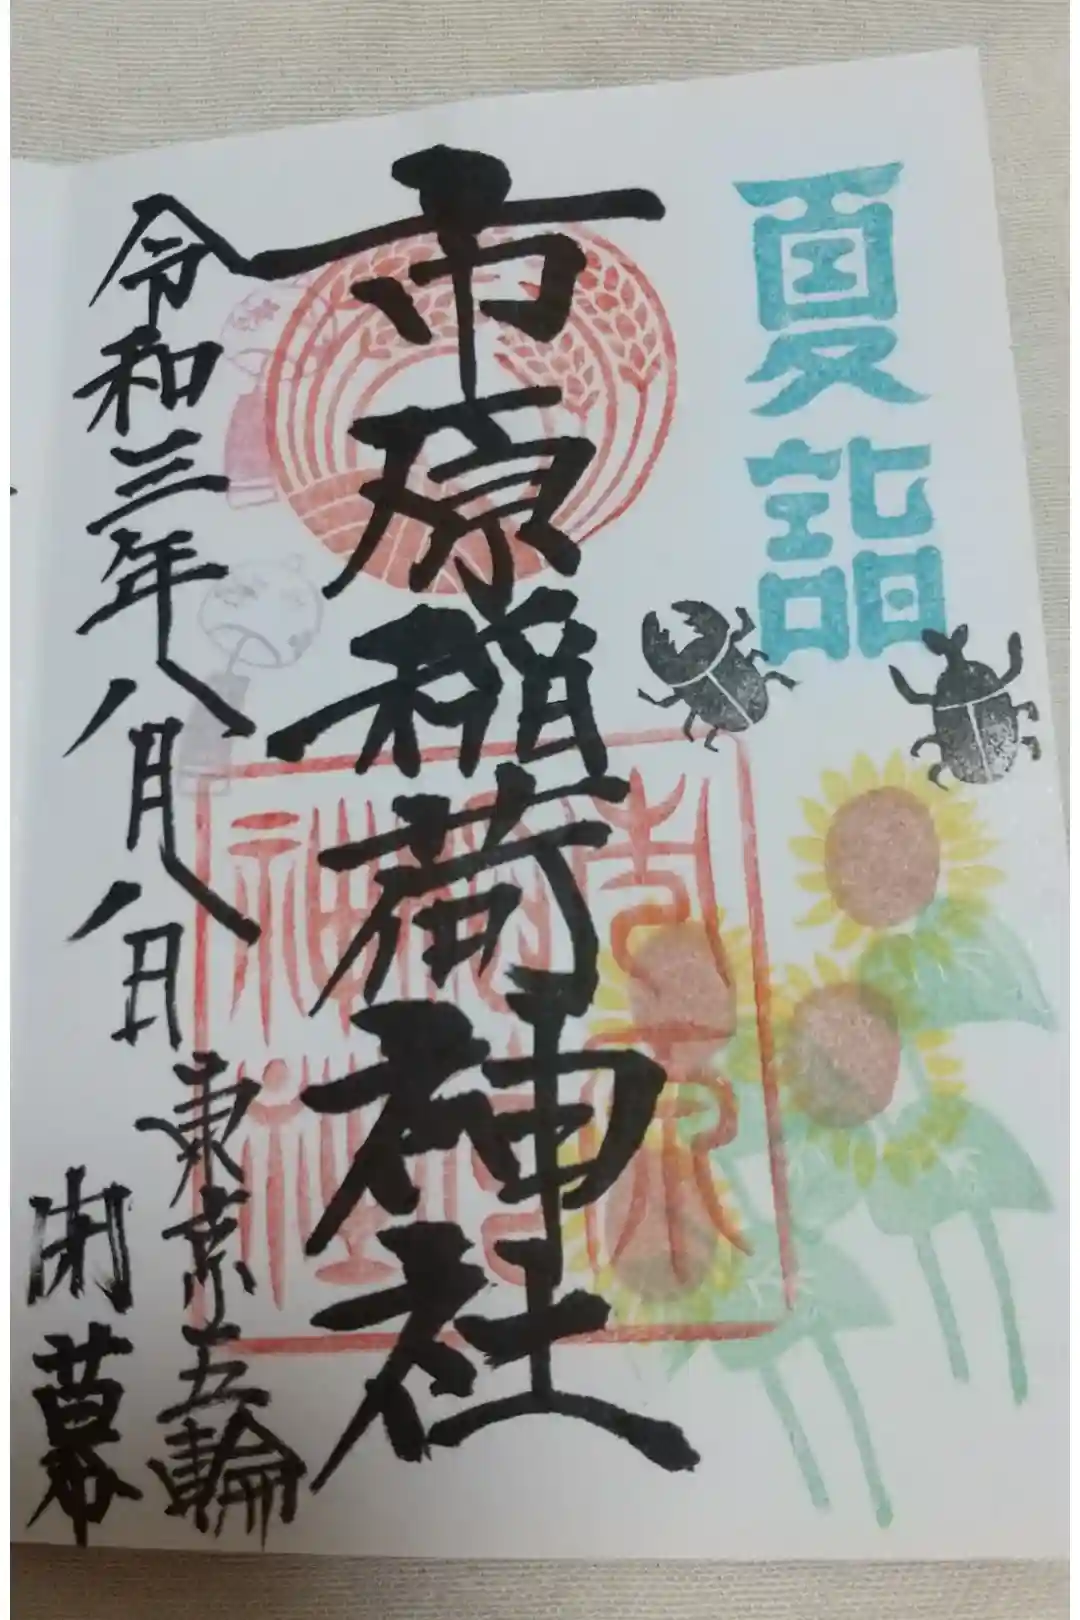 夏詣
市原稲荷神社
令和三年八月八日
東京五輪
閉幕